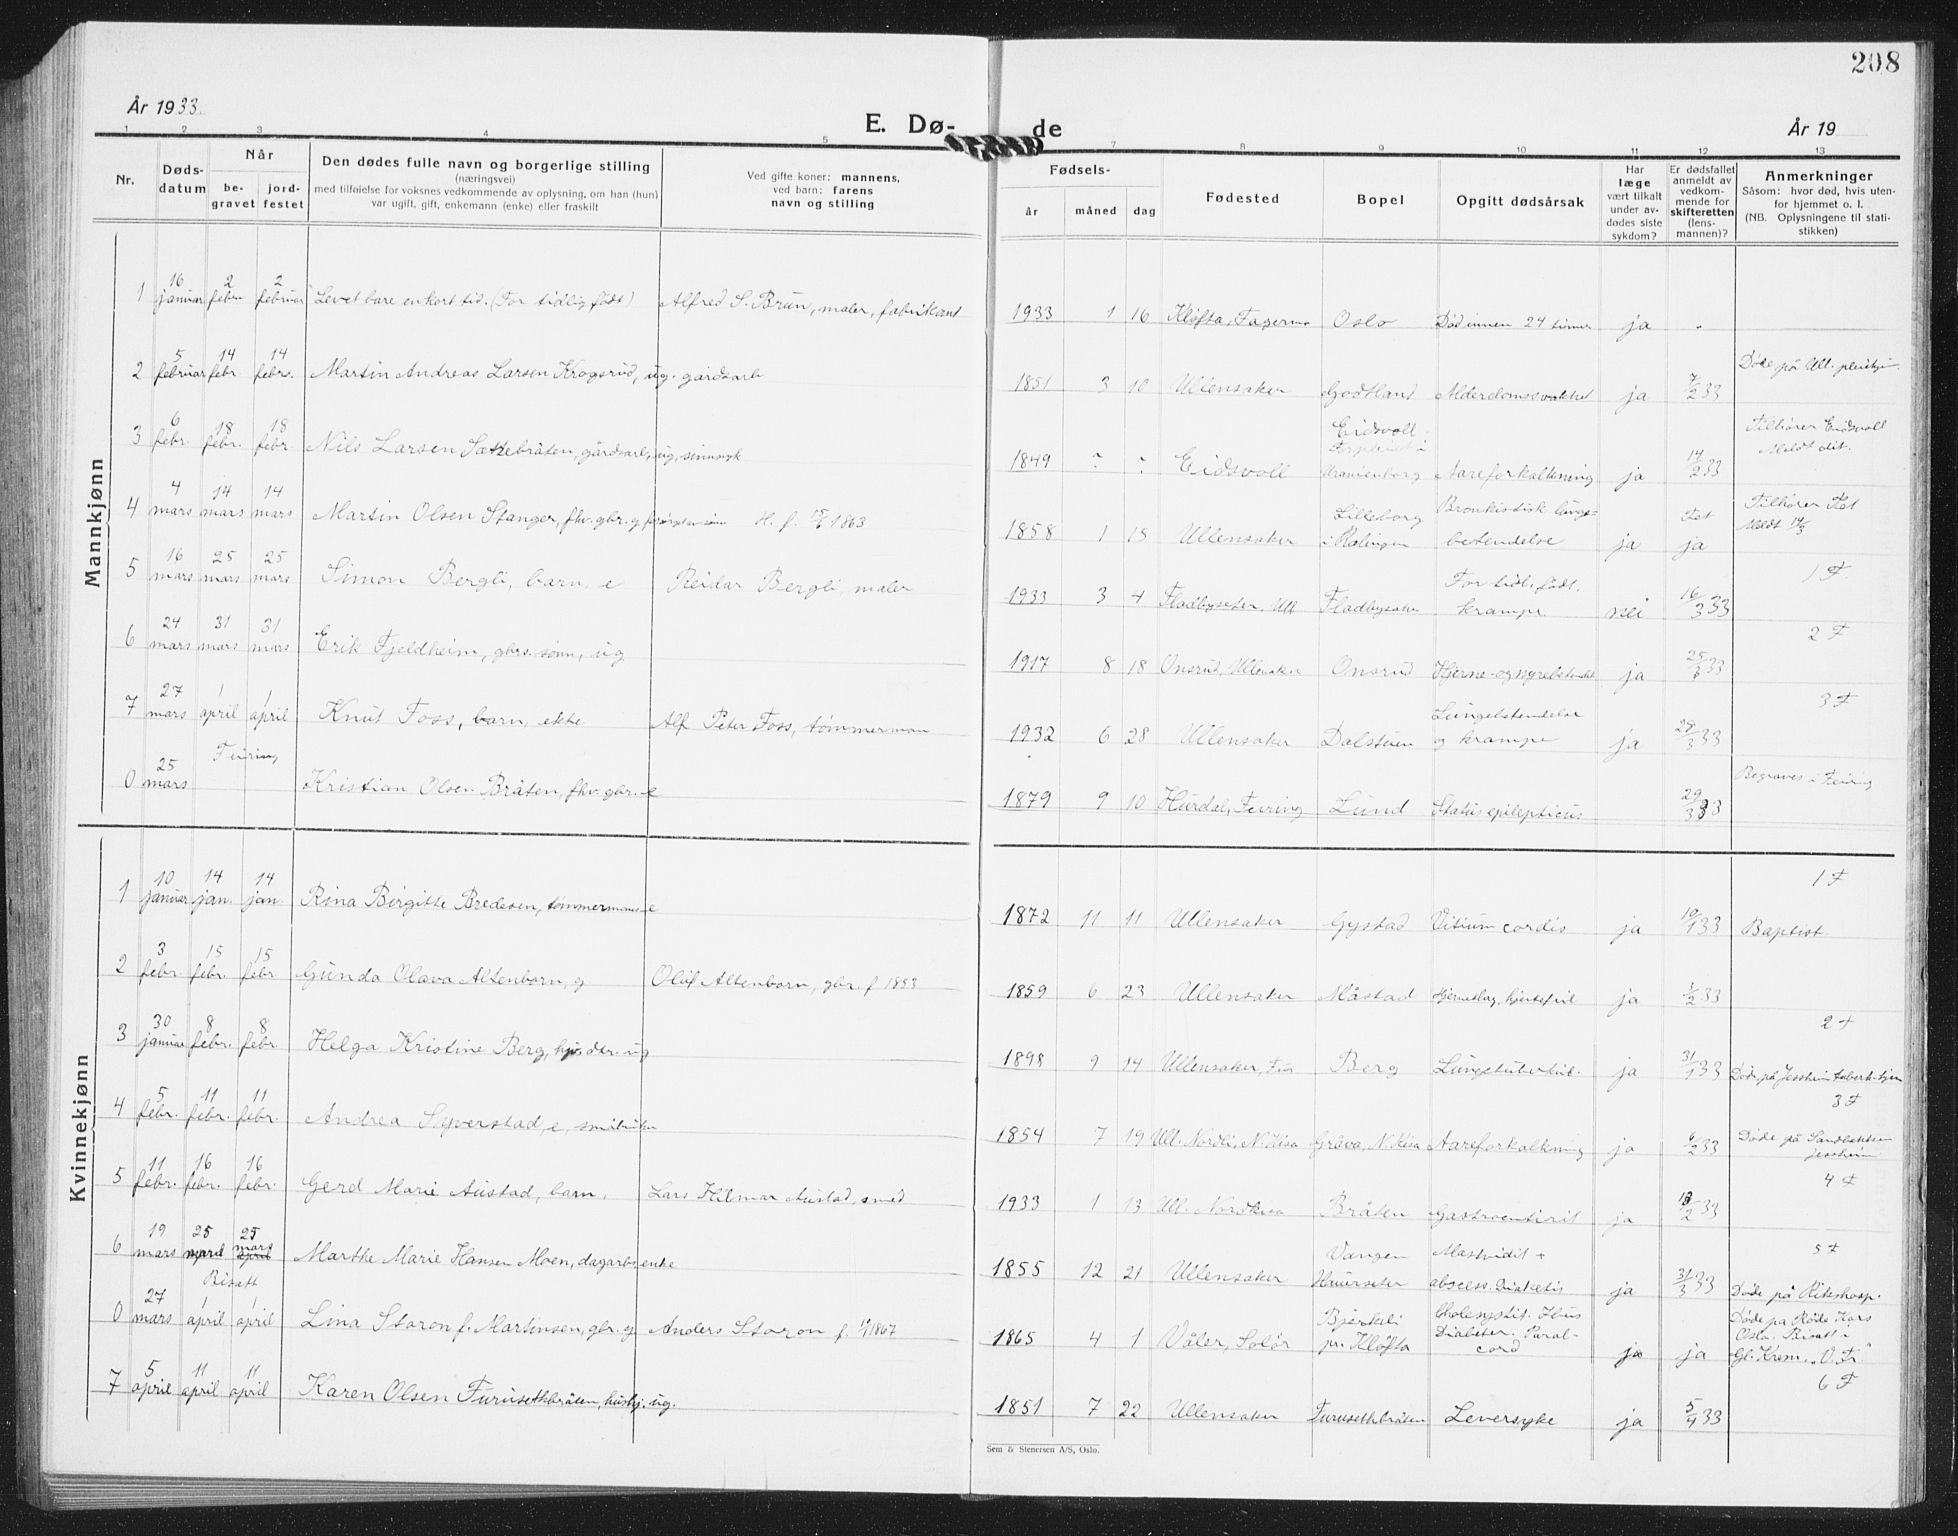 208
År 1933.
E. Dø-
de
År 19
1 2 3 4 5 7 8 9 10 11 12 13
Nr.
Døds-
datum
Når
be-
gravet
jord-
festet
Den dødes fulle navn og borgerlige stilling
(næringsvei)
med tilføielse for voksnes vedkommende av oplysning, om han (hun)
var ugift, gift, enkemann (enke) eller fraskilt
Ved gifte koner: mannens,
ved barn: farens
navn og stilling
Fødsels-
år måned dag
Fødested
Bopel
Opgitt dødsårsak
Har
læge
vært tilkalt
under av-
dødes siste
sykdom?
Er dødsfallet
anmeldt av
vedkom-
mende for
skifteretten
(lens-
mannen)?
Anmerkninger
Såsom: hvor død, hvis uten-
for hjemmet o. l.
(NB. Oplysningene til stati-
stikken)
Mannkjønn
1 16 januar 2 febru 2 februar Levet bare en kort tid. (For tidlig født) Alfred S. Brun, maler, fabrikant 1933 1 16 Kløfta, Oslo Død innen 24 timer ja
2 5 februar 14 febr. 14 febr. Martin Andreas Larsen Krogsrud, ug. gårdsarb 1851 3 10 Ullensaker Godtland Alderdomssvakhet ja 7/2 33 Døde på Ull. pleiehj.
3 6 febr. 18 febr. 18 febr. Nils Larsen Sættebråten, gårdsarb, ug, sinnsyk 1849 ? Eidsvoll Eidsvoll Uranienborg Aareforkalkning ja 14/2 33 Tilhører Eidsvoll
Meldt dit.
4 4 mars 14 mars 14 mars Martin Olsen Stanger, fhv. gbr. g H. f. 1863 1858 1 15 Ullensaker Lilleborg i Rælingen Bronkistisk lunge-
betendelse ja Fet ja Tilhører Fet
Meldt 14/3
5 16 mars 25 mars 25 mars Simon Bergli, barn, e Reidar Bergli, maler 1933 3 4 Fladbyseter, Ull Fladbyseter For tidl. født.
krampe nei 16/3 33 1 F
6 24 mars 31 mars 31 mars Erik Fjeldheim, gbrs. sønn, ug 1917 8 18 Onsrud, Ullensaker Onsrud Hjerne- og nyrebetendel ja 25/3 33 2 F
7 27 mars 1 april 1 april Knut Foss, barn, ekte Alf Peter Foss, tømmerman 1932 6 28 Ullensaker Dalstuen Lungebetendelse
og krampe ja 28/3 33 3 F
Feiring
0 25 mars Kristian Olsen Bråten, fhv. gbr. e 1879 9 10 Hurdal, Feiring Lund Status epilepticus 29/3 33 Begraves i Feiring
Kvinnekjønn
1 10 januar 14 jan. 14 jan. Rina Birgitte Bredesen, tømmermanns e 1872 11 11 Ullensaker Gystad Vitium cordis ja 10/1 33 1 F
Baptist.
2 3 febr. 15 febr. 15 febr Gunda Olava Altenborn, g Oluf Altenborn, gbr. f 1853 1859 6 23 Ullensaker Måstad Hjerneslag, hjertefeil ja 3/2 33
2 F
3 30 januar 8 febr. 8 febr Helga Kristine Berg, dtr. ug 1898 9 14 Ullensaker, Berg Lungetuberkul. ja 31/1 33 Døde på Jessheim tuberk.hjem
3 F
4 5 febr. 11 febr. 11 febr. Andrea Syverstad, e, småbruker 1854 7 19 Ull. Nordli, N. Kisa Gråva, N. Kisa Aareforkalkning ja 6/2 33 Døde på Sandbakken
Jessheim
4 F
5 11 febr. 16 febr. 16 febr. Gerd Marie Austad, barn. Lars Hilmar Austad, smed 1933 1 13 Ull. Nordkisa Bråten Gastroentirit ja 13/2 33
5 F
6 19 mars 25 april 25 mars april Marthe Marie Hansen Moen, dagarbs enke 1855 12 21 Ullensaker Vangen Huerseter Mastoidit +
abscess. Diabetis ja 31/3 33 Døde på Rikshosp.
Bisatt
0 27 mars 1 april 1 april Lina Storon f. Martinsen, gbr. g Anders Storon f. 1867 1865 4 1 Våler, Solør Bjerkeli
pr. Kløfta Cholecystit. Hus
Diabeter. Paral-
cord ja ja Døde på Røde Kors
Oslo. Bisatt i
Gl. Krem. "V. Fr."
6 F
7 5 april 11 april 11 april Karen Olsen Furusethbråten, hushj. ug. 1851 7 22 Ullensaker Furusethbråten Leversyke ja 5/4 33
Sem & Stenersen A/S, Oslo.